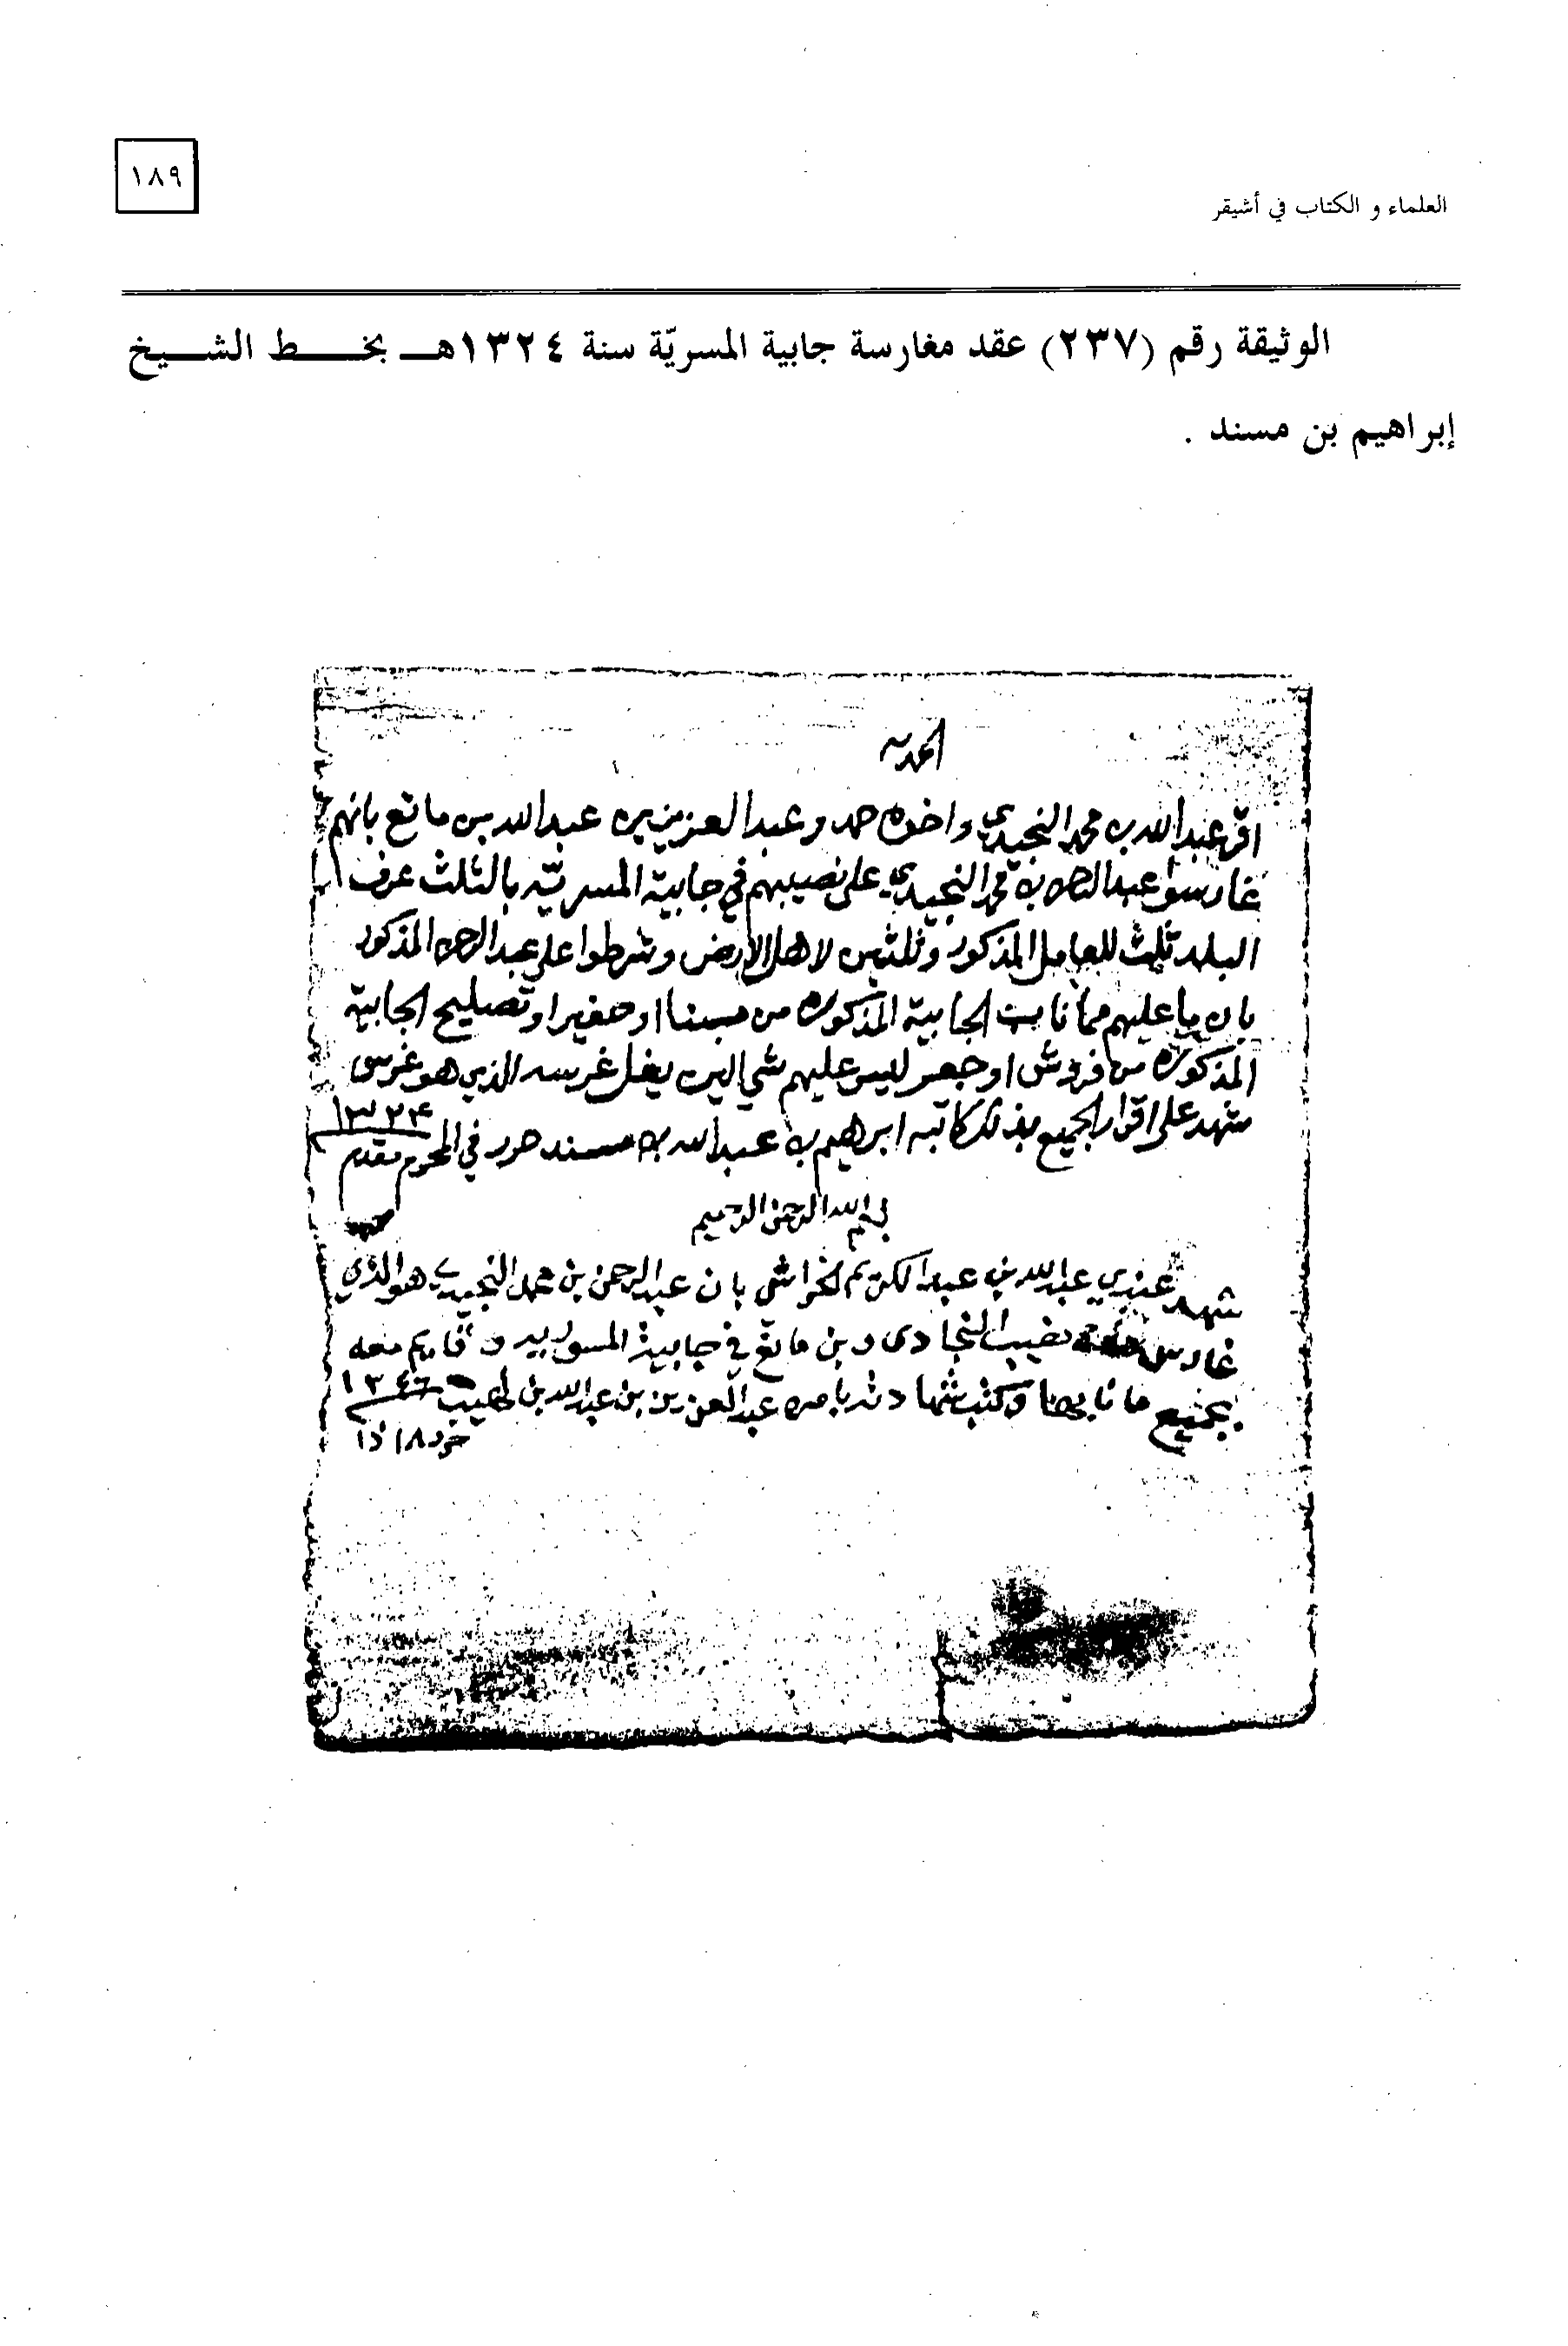 ١٨٩
العلماء و الكتاب في أشيقر
الوثيقة رقم (٢٣٧) عقد مغارسة جابية المسريّة سنة ١٣٢٤هـ بخط الشيخ
إبراهيم بن مسند .
الحمد لله
اقر عبدالله بن محمد النجيدي واخوه حمد وعبدالعزيز بن عبدالله بن مانع بانهم
غارسوا عبدالرحمن بن محمد النجيدي على نصيبهم في جابية المسريّه بالثلث عرف
البلد ثلث للعامل المذكور وثلثين لاهل الارض وشرطوا على عبدالرحمن المذكور
بان ما عليهم مما ناب الجابية المذكوره من مبنا او حفير او تصليح الجابية
المذكوره من فروش او جص ليس عليهم شي الين يغل غرسه الذي هو غرس
شهد على اقرار الجميع بذلك كاتبه ابراهيم بن عبدالله بن مسند حرر في المحرم مقدم ١٣٢٤
بسم الله الرحمن الرحيم
شهد عندي عبدالله بن عبدالكريم الخراشي بان عبدالرحمن بن محمد النجيدي هو الذي
غارس نصيب النجادى وبن مانع في جابية المسوريه وقايم معه
بجميع ما نابها وكتب شهادته بامره عبدالعزيز بن عبدالله بن ١٣٤٦
حرر ١٨ ذا